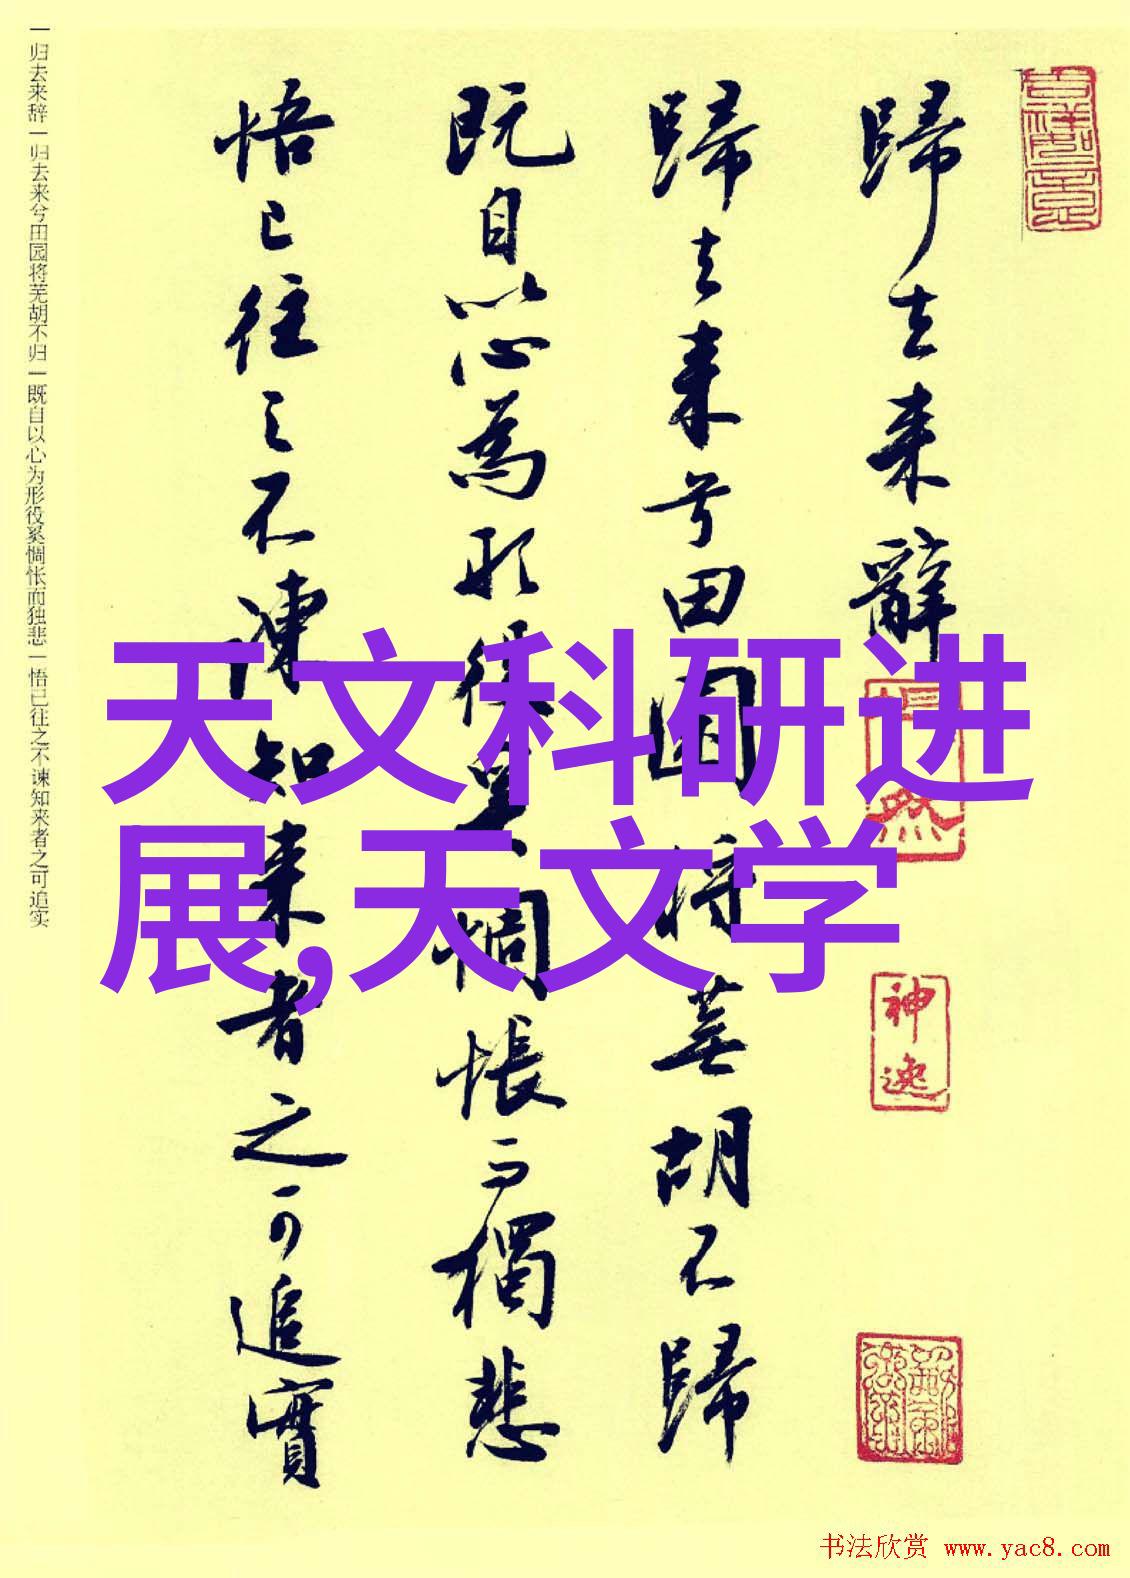 歸去来辭
歸去来兮田園将蕪胡不歸
既自以心為形役奚惆悵而獨悲
悟已往之不諫知来者之可追實
一归去来辞一归去来兮田园将芜胡不归一既自以心为形役奚惆怅而独悲一悟已往之不谏知来者之可追实
天文科研进
展,天文学
神逸
书法欣赏 www.yac8.com